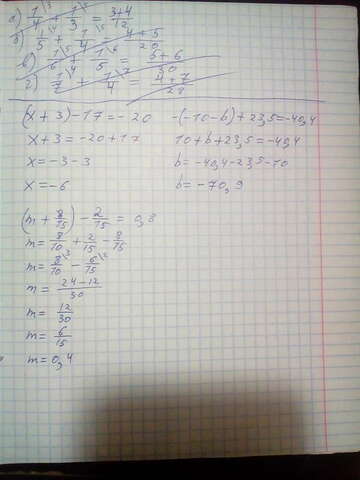 а) 1/4\3 + 1/3\4 = 3+4/12
б) 1/5\4 + 1/4\5 = 4+5/20
в) 1/6\5 + 1/5\6 = 5+6/30
г) 1/7\4 + 1/4\7 = 4+7/28
(x + 3) - 17 = - 20
x + 3 = -20 + 17
x = -3 - 3
x = -6
-(-10 - b) + 23,5 = -40,4
10 + b + 23,5 = -40,4
b = -40,4 - 23,5 - 10
b = -70,9
(m + 8/15) - 2/15 = 0,8
m = 8/10 + 2/15 - 8/15
m = 8/10\3 - 6/15\2
m = 24-12/30
m = 12/30
m = 6/15
m = 0,4